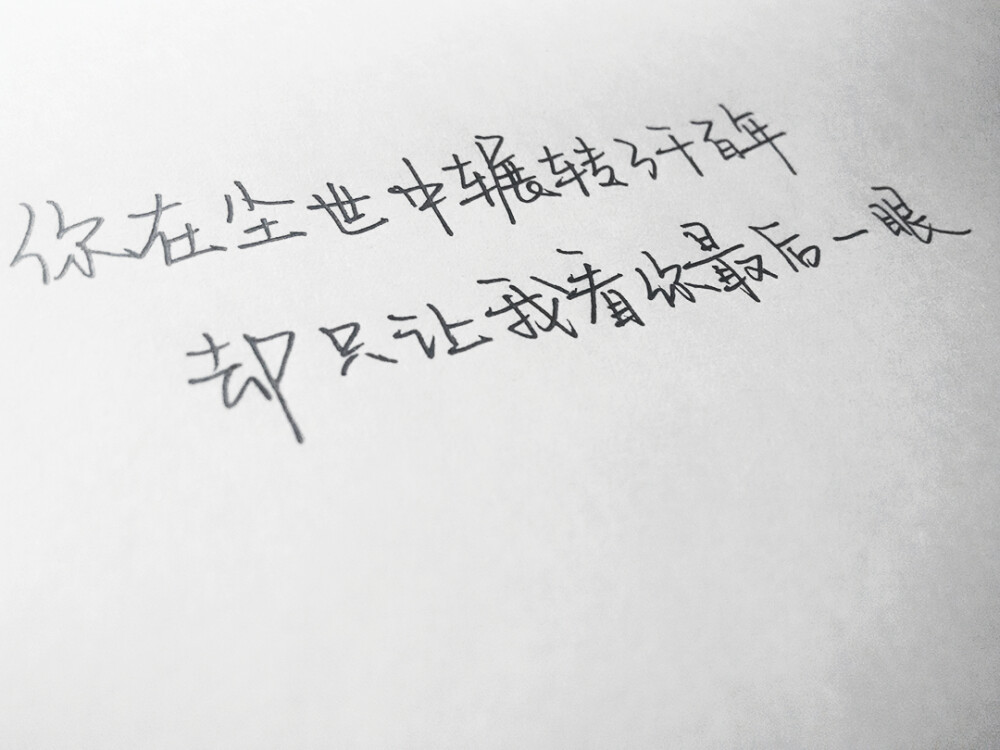 你在尘世中辗转了千百年
却只让我看你最后一眼